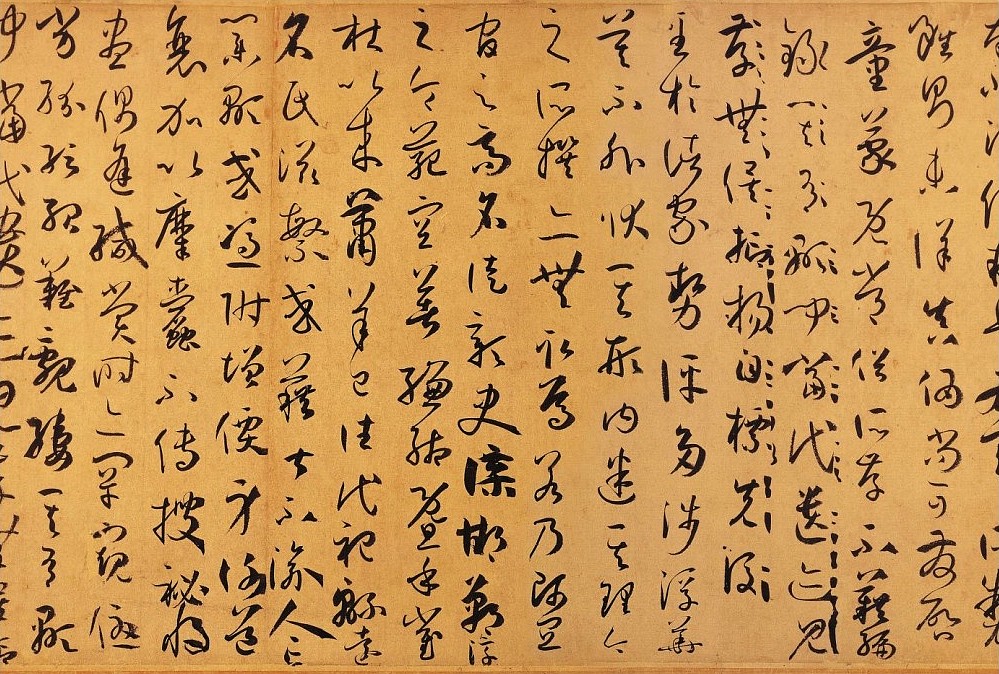 雖則未詳真偽尚可發啓
童蒙既常俗所存不藉編
錄其有顯聞當代遺迹見
存無俟抑揚自標先後
至於諸家勢評多涉浮華
莫不外狀其形內迷其理今
之所撰亦無取焉若乃師宜
官之高名徒彰史牒邯鄲淳
之令範空著縑緗暨乎崔
杜以來蕭羊已往代祀綿遠
名氏滋繁或藉甚不渝人亡
業顯或憑附增價身謝道
衰加以糜蠹不傳搜祕將
盡偶逢緘賞時亦罕窺優
劣紛紜殆難覼縷其有顯